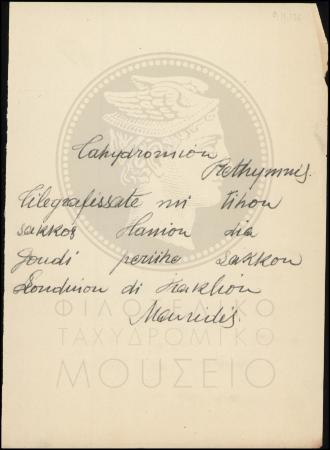 Tahydromion
Rethymnis.
Tilegrafissate mi tihon
sakkos Hanion dia
Goudi periihe sakkon
Londinon di Iraklion
Mavridis.
ΦΙΛΟΤΕΛΙΚΟ
ΤΑΧΥΔΡΟΜΙΚΟ
ΜΟΥΣΕΙΟ